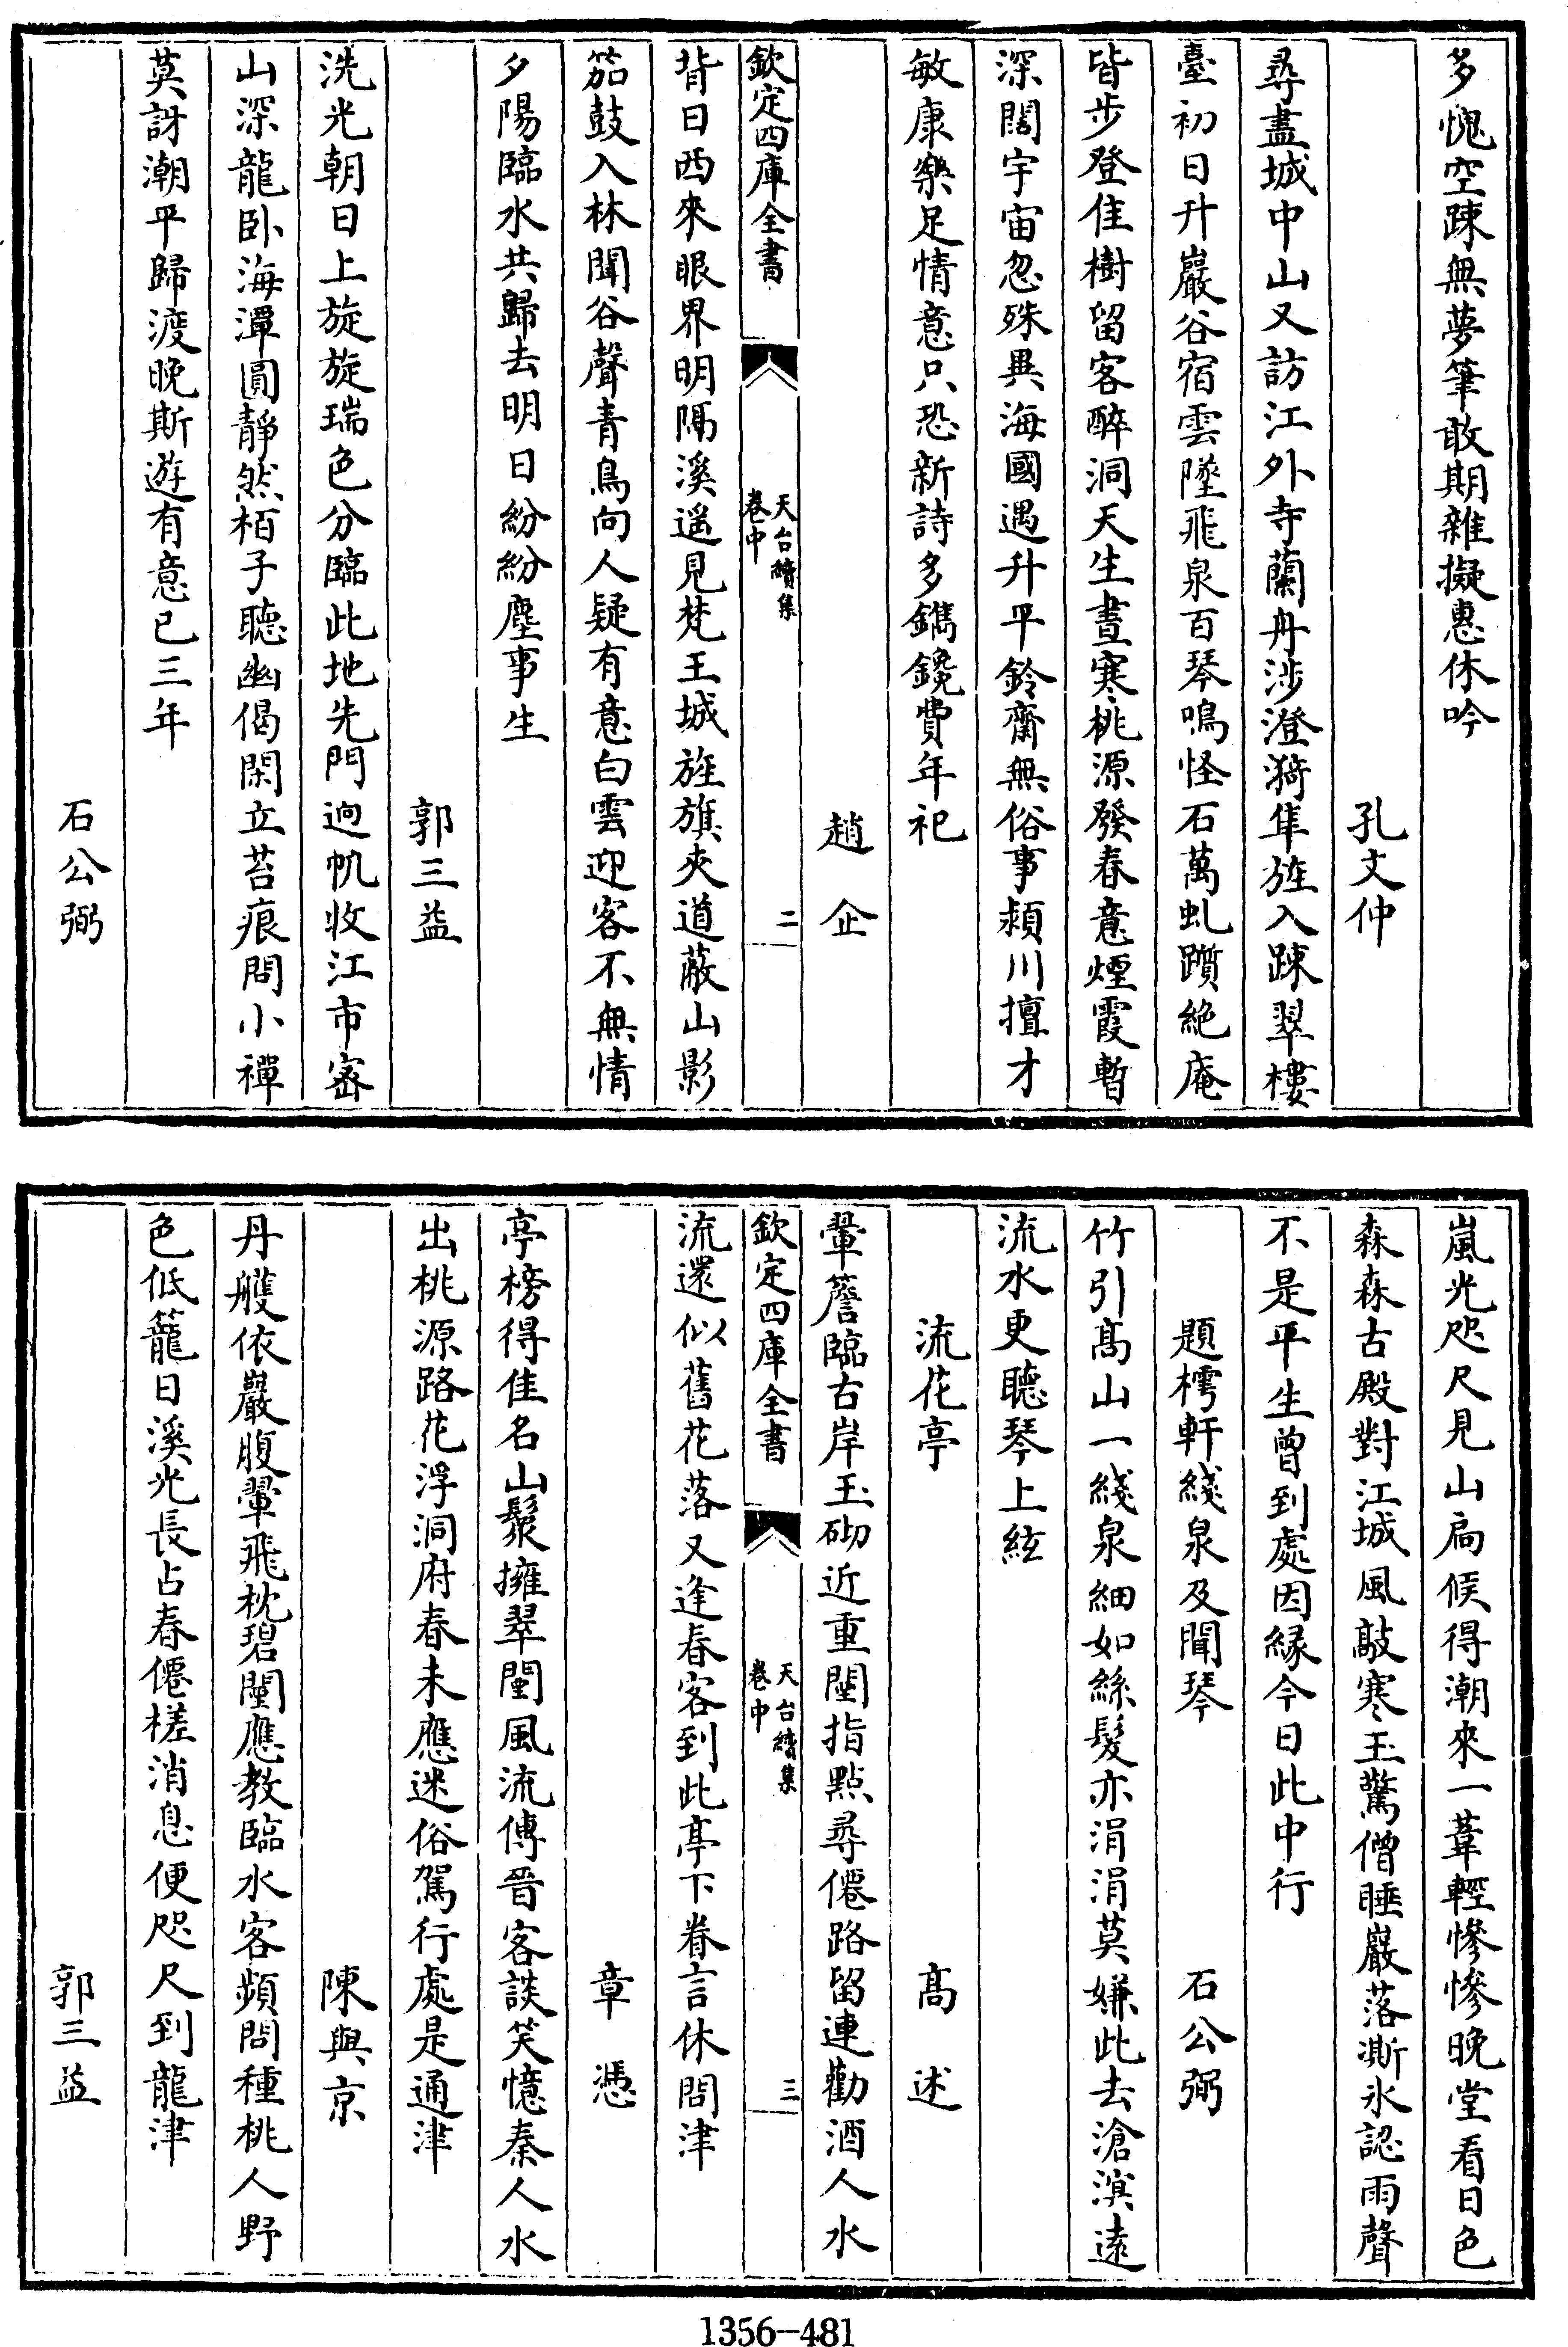 多愧空踈無夢筆敢期雜擬惠休吟
孔文仲
尋盡城中山又訪江外寺蘭舟涉澄漪隼旌入踈翠樓
臺初日升巖谷宿雲墜飛泉百琴鳴怪石萬虬躓絶庵
皆步登佳樹留客醉洞天生晝寒桃源發春意煙霞暫
深闊宇宙忽殊異海國遇升平鈴齋無俗事潁川擅才
敏康樂足情意只恐新詩多鐫鑱費年祀
趙企
欽定四庫全書
天台續集
卷中
二
背日西來眼界明隔溪遥見梵王城旌旗夾道蔽山影
笳鼓入林聞谷聲青鳥向人疑有意白雲迎客不無情
夕陽臨水共歸去明日紛紛塵事生
郭三益
洗光朝日上旋旋瑞色分臨此地先門逈帆收江市宻
山深龍卧海潭圓静然栢子聽幽偈閑立苔痕問小禪
莫訝潮平歸渡晚斯遊有意已三年
石公弼
嵐光咫尺見山扃候得潮來一葦輕慘慘晚堂看日色
森森古殿對江城風敲寒玉驚僧睡巖落澌氷認雨聲
不是平生曾到處因縁今日此中行
題樗軒綫泉及聞琴
石公弼
竹引髙山一綫泉細如絲髮亦涓涓莫嫌此去滄溟逺
流水更聽琴上絃
流花亭
髙述
翬簷臨古岸玉砌近重闉指點尋僊路留連勸酒人水
欽定四庫全書
天台續集
卷中
三
流還似舊花落又逢春客到此亭下眷言休問津
章憑
亭榜得佳名山鬟擁翠闉風流傳晉客談笑憶秦人水
出桃源路花浮洞府春未應迷俗駕行處是通津
陳與京
丹艧依巖腹翬飛枕碧闉應教臨水客頻問種桃人野
色低籠日溪光長占春僊槎消息便咫尺到龍津
郭三益
1356-481